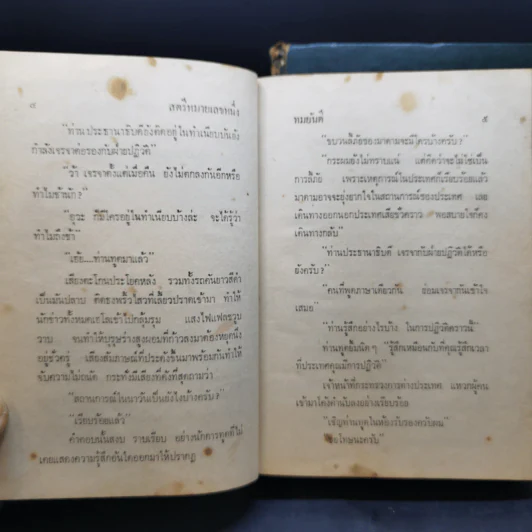 ๘
สตรีหมายเลขหนึ่ง
"ท่านประธานาธิบดียังติดอยู่ในทำเนียบบันยัง
กำลังเจรจาต่อรองกับฝ่ายปฏิวัติ"
"ว้า เจรจาตั้งแต่เมื่อคืน ยังไม่ตกลงกันอีกหรือ
ทำไมช้านัก?"
"ฮุวะ ก็มีใครอยู่ในทำเนียบบ้างล่ะ จะได้รู้ว่า
ทำไมถึงช้า"
"เฮ้ย....ท่านทูตมาแล้ว"
เสียงตะโกนประโยคหลัง รวมทั้งรถคันยาวสีดำ
เป็นมันปลาบ ติดธงพริ้วไสวที่เลี้ยวปราดเข้ามา ทำให้
นักข่าวทั้งหมดแฮโลเข้าไปกลุ้มรุม แสงไฟแฟลชวูบ
วาบ จนทำให้บุรุษร่างสูงผอมที่ก้าวลงมาต้องหยุดนิ่ง
อยู่ชั่วครู่ เสียงสัมภาษณ์ที่ประดังขึ้นมาพร้อมกันทำให้
จับความไม่ถนัด กระทั่งมีเสียงที่ดังที่สุดถามว่า
"สถานการณ์ในนาวันเป็นยังไงบ้างครับ?"
"เรียบร้อยแล้ว"
คำตอบนั้นสงบ ราบเรียบ อย่างนักการทูตที่ไม่
เคยแสดงความรู้สึกอันใดออกมาให้ปรากฏ
ทมยันตี
๕
"ขบวนลี้ภัยของมาดามจะมีใครบ้างครับ?"
"กระผมยังไม่ทราบแน่ แต่คิดว่าจะไม่ใช่เป็น
การลี้ภัย เพราะเหตุการณ์ในประเทศก็เรียบร้อยแล้ว
มาดามอาจจะยุ่งยากใจในสถานการณ์ของประเทศ เลย
เดินทางออกนอกประเทศเสียชั่วคราว พอสบายใจก็คง
เดินทางกลับ"
"ท่านประธานาธิบดี เจรจากับฝ่ายปฏิวัติได้หรือ
ยังครับ?"
"คนที่พูดภาษาเดียวกัน ย่อมเจรจากันเข้าใจ
เสมอ"
"ท่านรู้สึกอย่างไรบ้าง ในการปฏิวัติคราวนี้"
ท่านทูตยิ้มนิดๆ "รู้สึกเหมือนกับที่คุณรู้สึกเวลา
ที่ประเทศคุณมีการปฏิวัติ"
เจ้าหน้าที่กระทรวงการต่างประเทศ แหวกผู้คน
เข้ามาโค้งคำนับลงอย่างเรียบร้อย
"เชิญท่านทูตในห้องรับรองครับผม"
"ขอโทษนะครับ"